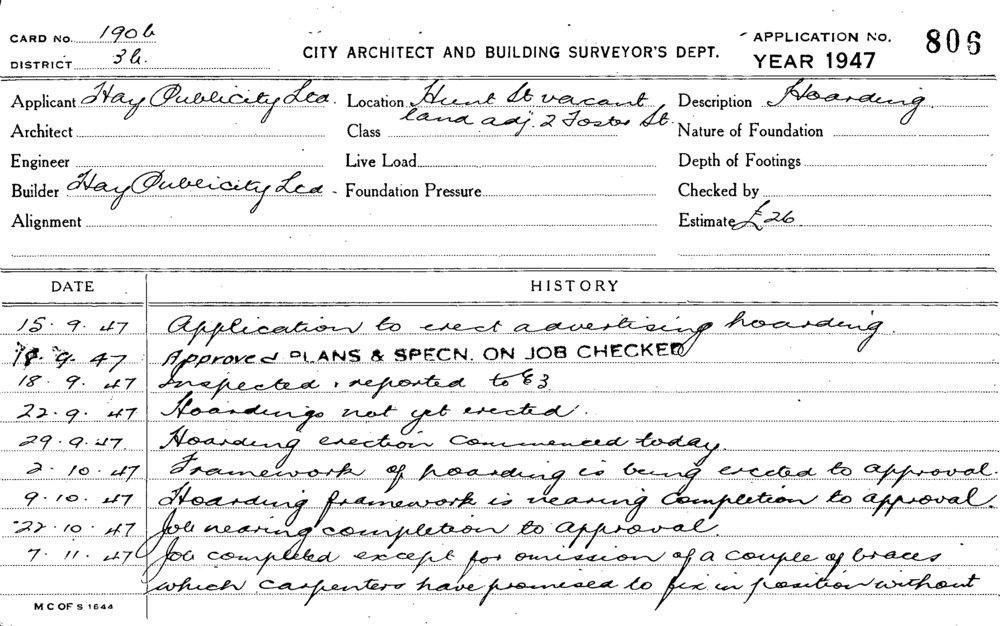 CARD No. 190b
DISTRICT 3b.
CITY ARCHITECT AND BUILDING SURVEYOR'S DEPT.
APPLICATION No. 806
YEAR 1947
Applicant Hay Publicity Ltd. Location Hunt St vacant Description Hoarding
Architect Class land adj. 2 Foster St. Nature of Foundation
Engineer Live Load Depth of Footings
Builder Hay Publicity Ltd - Foundation Pressure Checked by
Alignment Estimate £26
DATE HISTORY
15.9.47 Application to erect advertising hoarding.
9.47 Approved PLANS & SPECN. ON JOB CHECKED
18.9.47 Inspected & reported to
22.9.47 Hoardings not yet erected.
29.9.47. Hoarding erection commenced today.
2.10.47 Framework of hoarding is being erected to approval.
9.10.47 Hoarding framework is nearing completion to approval.
22.10.47 Job nearing completion to approval
7.11.47 Job completed except for omission of a couple of braces
which carpenters have promised to fix in position without
M C OF S 1644